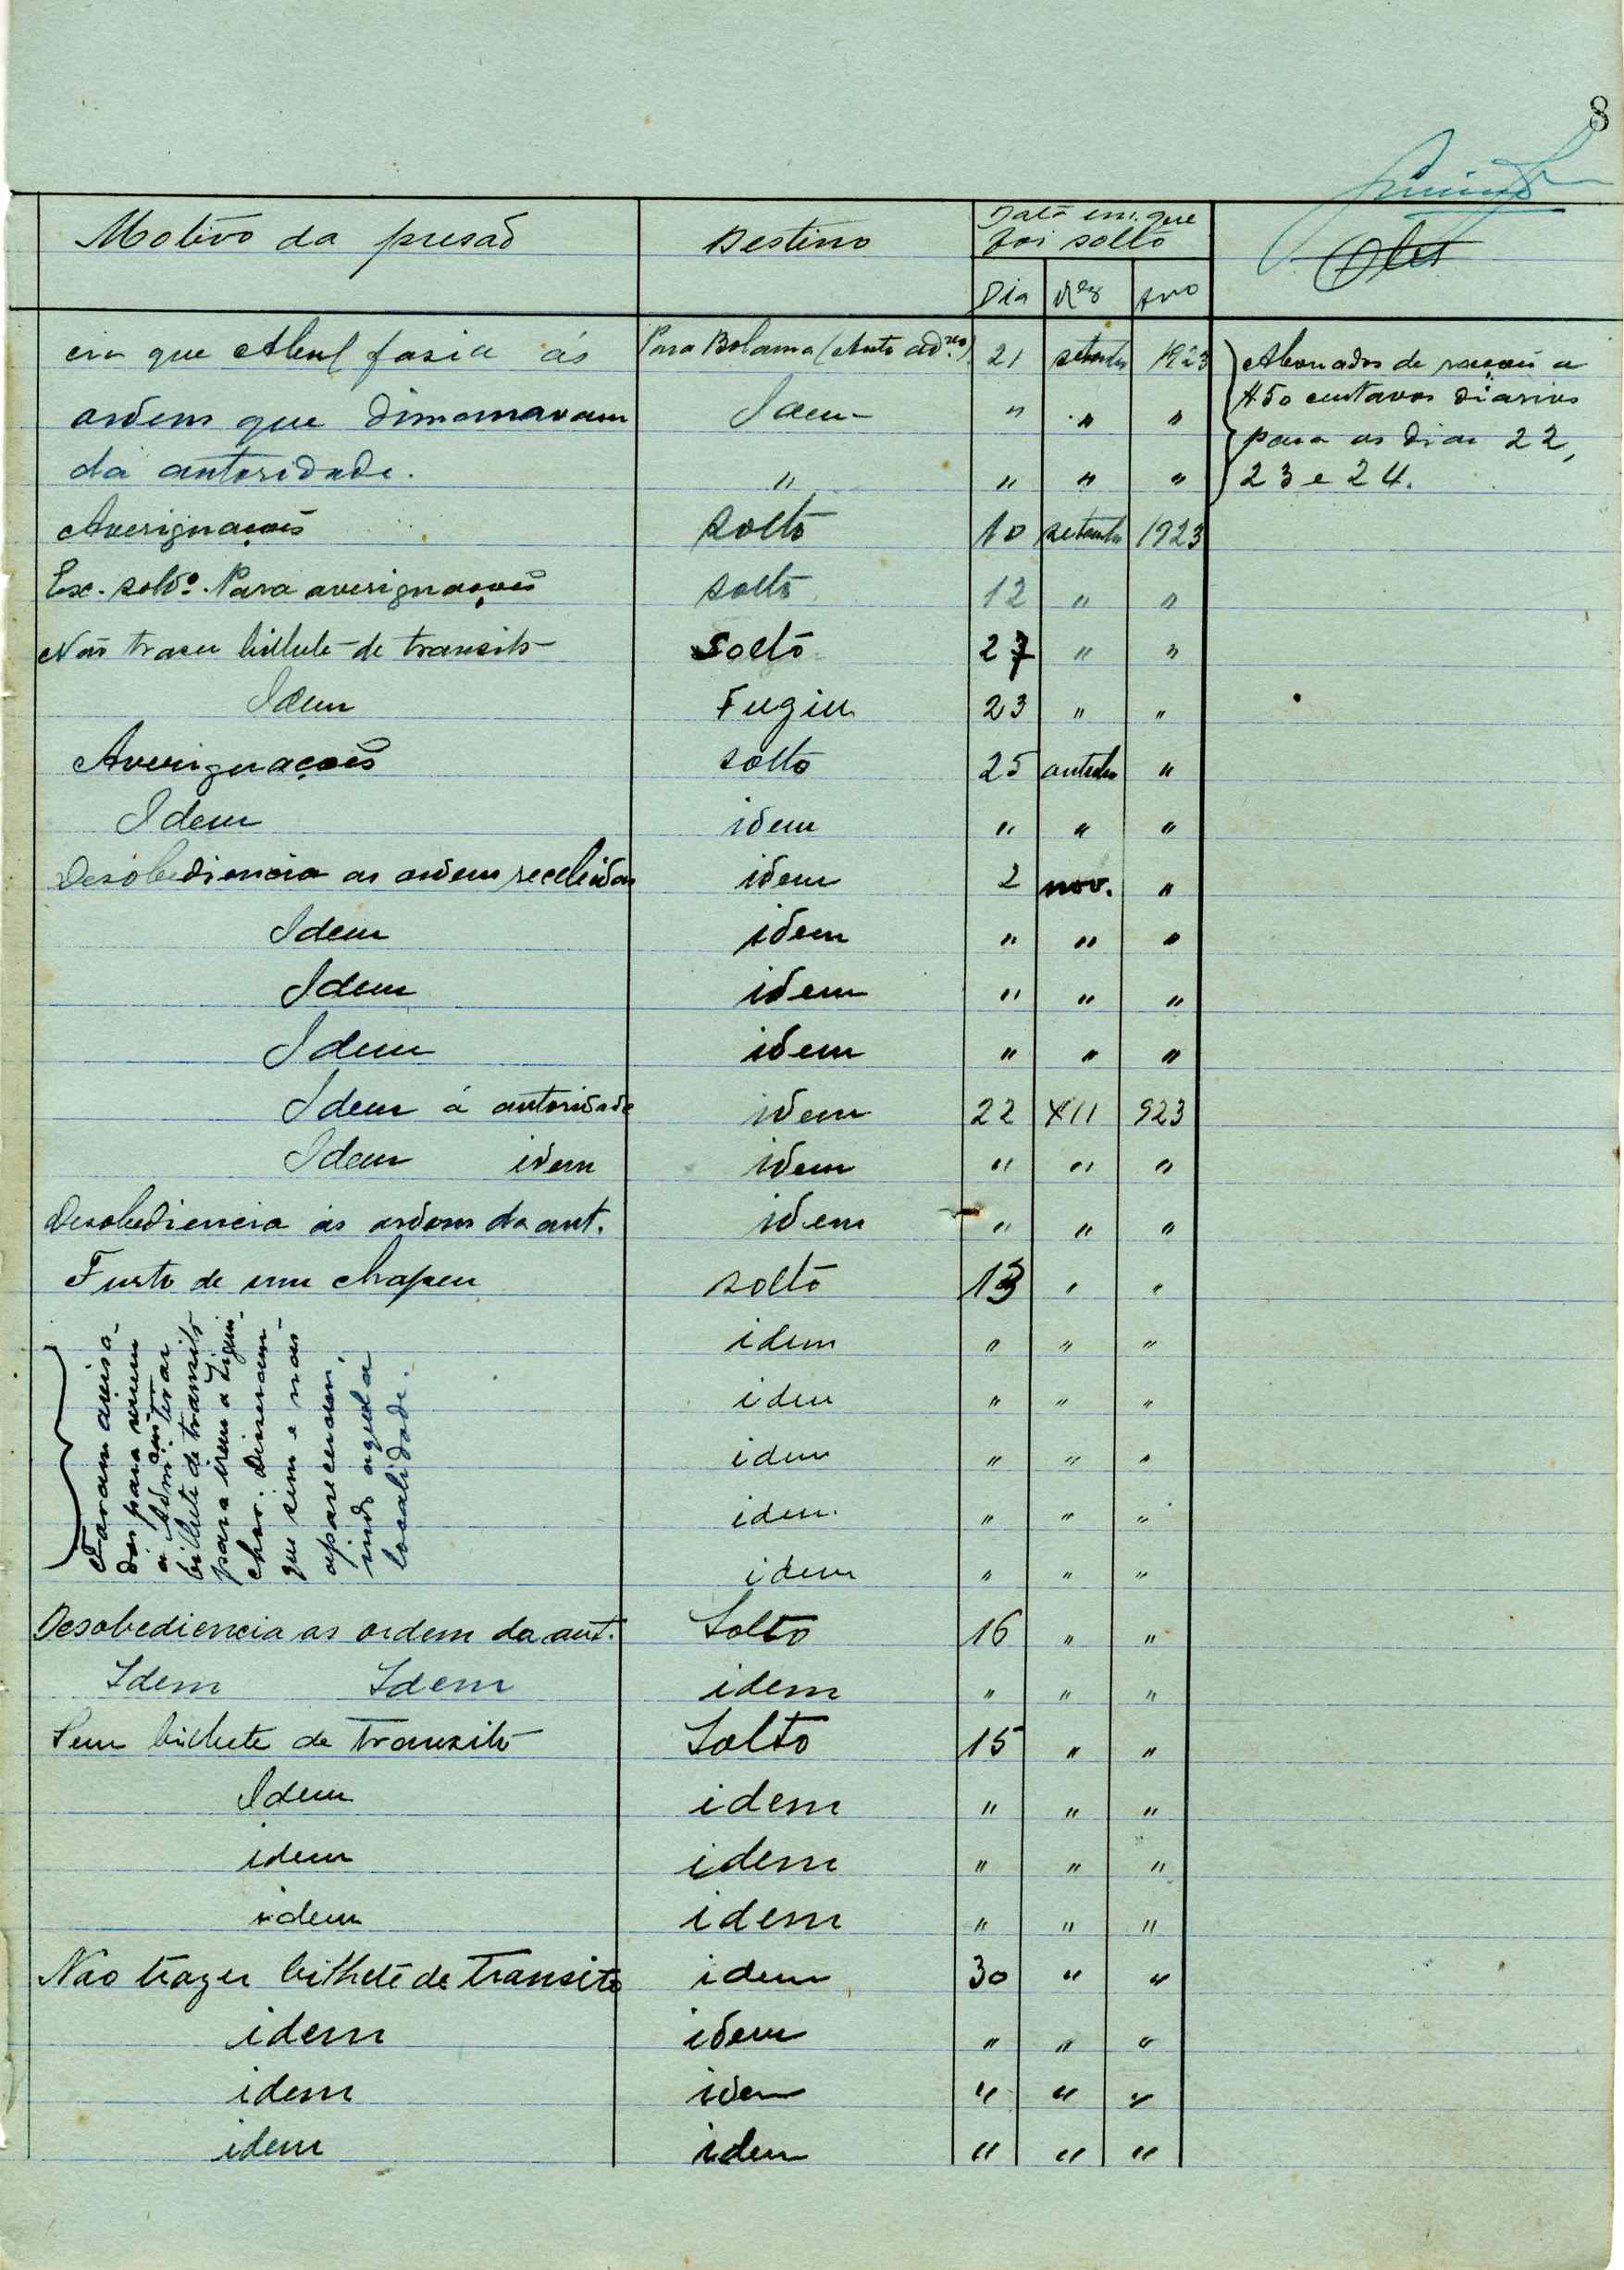 8
Motivo da presaõ Destino Data em que foi solto Obs
Dia Mez Ano
cia que Abul fasia ás Para Bolama (Auto ad.vo) 21 setembro 1923 Abonados de raçoẽs a
ordens que dimanavam Idem " " " $50 centavos diarios
da autoridade. " " " " para os dias 22,
23 e 24.
Averiguaçoẽs solto 10 setembro 1923
Ex. soldº. Para averiguaçoẽs solto 12 " "
Não trazer bilhete de transito Solto 27 " "
Idem Fugiu 23 " "
Averiguaçoẽs solto 25 outubro "
Idem idem " " "
Desobediencia as ordem recebidas idem 2 nov. "
Idem idem " " "
Idem idem " " "
Idem idem " " "
Idem á autoridade idem 22 XII 923
Idem idem idem " " "
Desobediencia ás ordens da aut. idem " " "
Furto de um chapeu solto 13 " "
Foram avisa-
dos para virem
a Admi. tirar
bilhete de transito
para irem a Ziguin-
chor. Disseram
que sim e não
apareceram,
indo aquela
localidade.
idem " " "
idem " " "
idem " " "
idem. " " "
idem " " "
Desobediencia as ordem da aut. Solto 16 " "
Idem Idem idem " " "
Sem bilhete de transito Solto 15 " "
Idem idem " " "
idem idem " " "
idem idem " " "
Não trazer bilhete de transito idem 30 " "
idem idem " " "
idem idem " " "
idem idem " " "